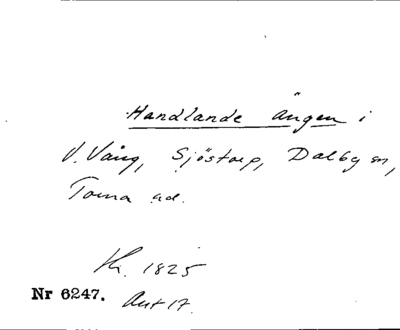 Handlande Ängen i
V. Vång, Sjöstorp, Dalby sn,
Torna hd.
Kr. 1825
Nr 6247. Aut 17.